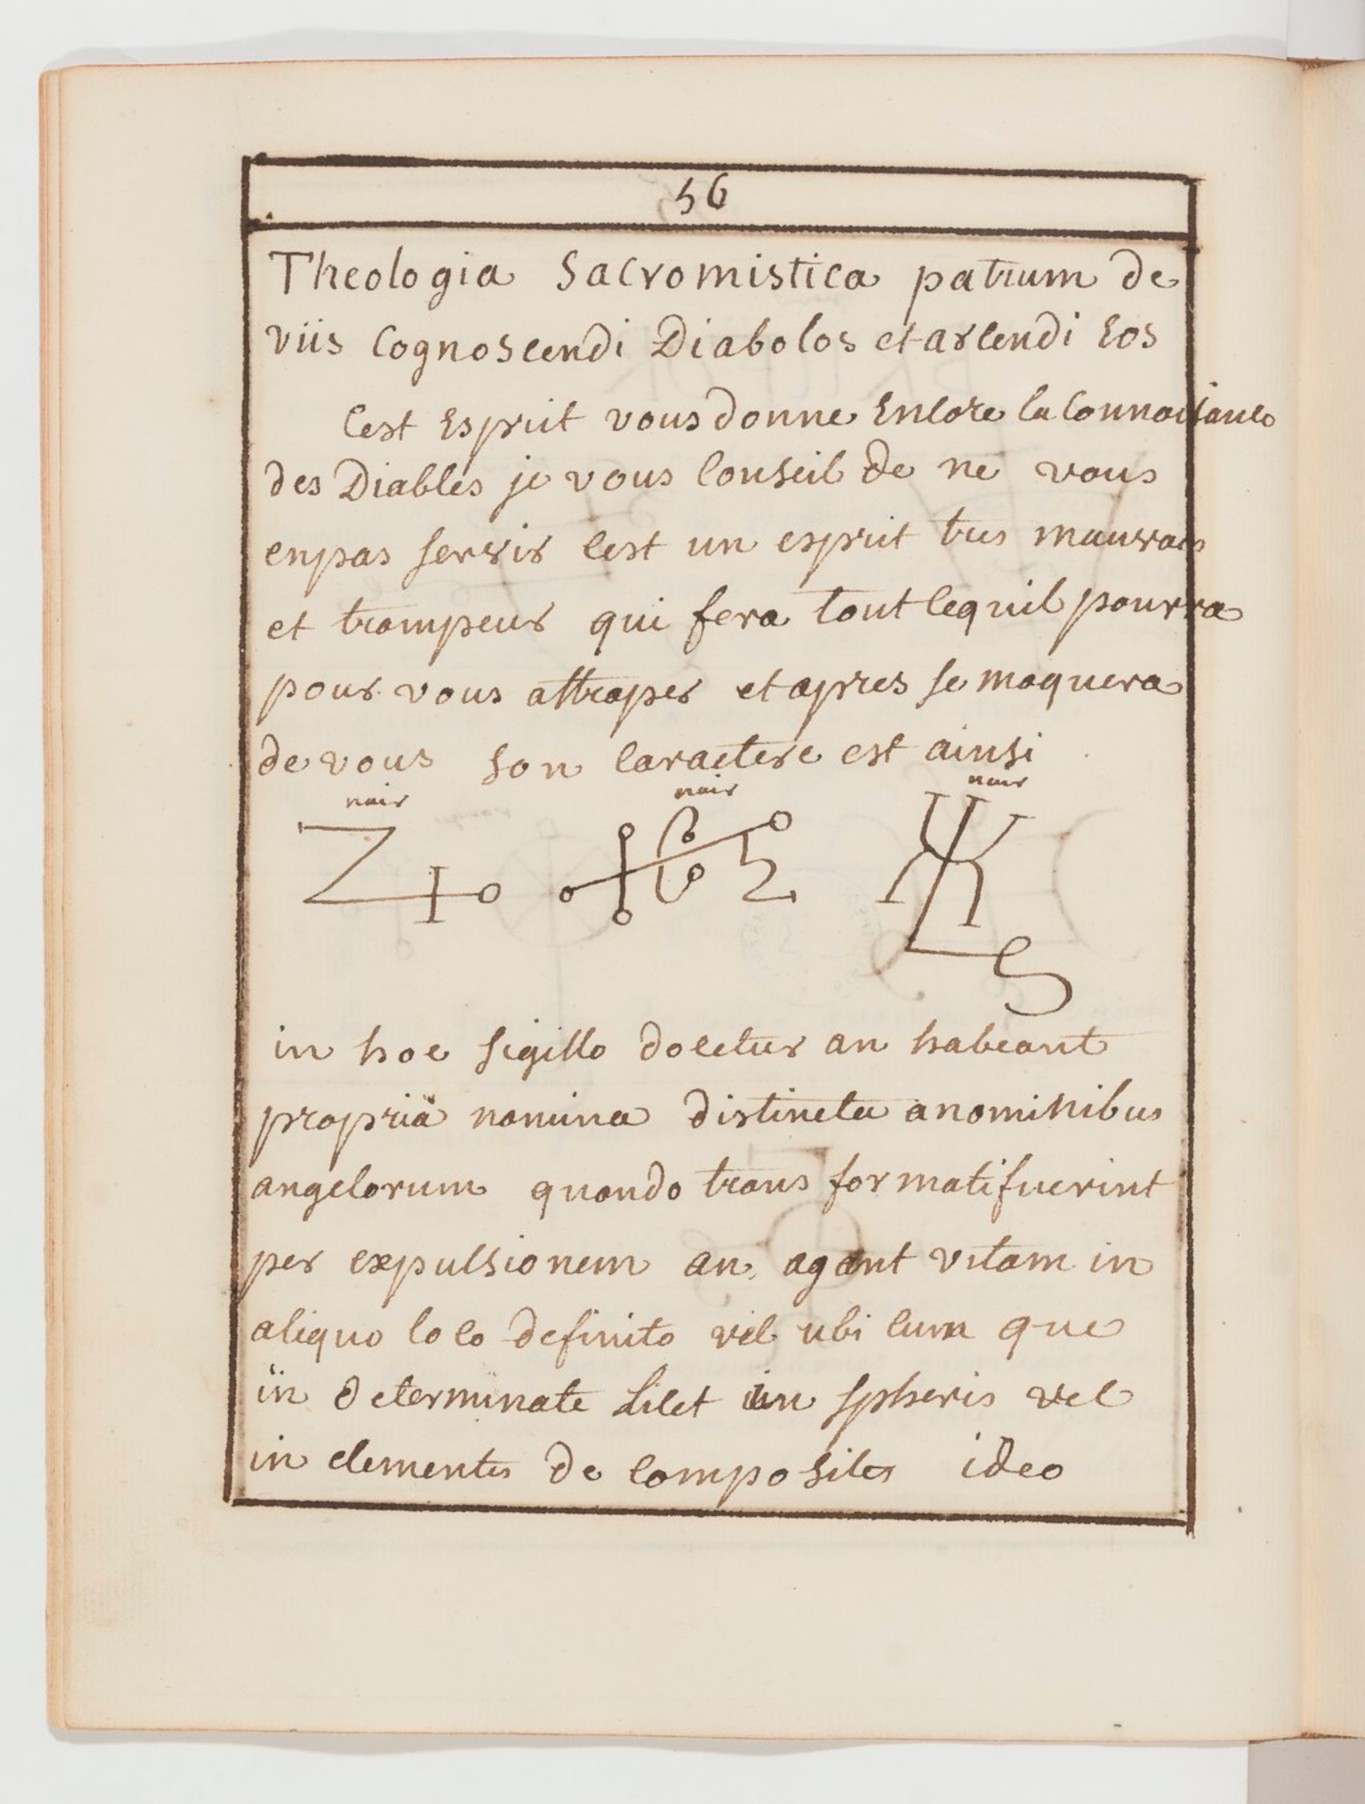 56
Theologia Sacromistica patrum de
viis Cognoscendi Diabolos et arcendi Eos
Cest Esprit vous donne Encore la Connoissance
des Diables je vous Conseil de ne vous
enpas servir cest un esprit tres mauvais
et trompeur qui fera tout cequil pourra
pour vous attraper et apres se moquera
de vous son caractere est ainsi
noir noir noir
in hoc sigillo docetur an habeant
propria nomina distincta anominibus
angelorum quando trans formatifuerint
per expulsionem an agant vitam in
aliquo loco definito vel ubi cum que
in determinate Licet in spheris vel
in elementis de compositis ideo